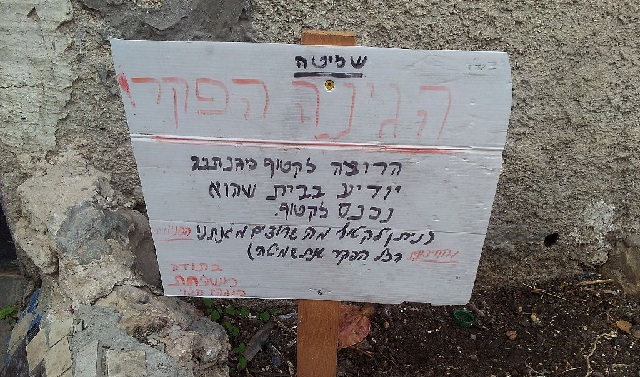 בס"ד
שמיטה
הגינה הפקר!
הרוצה לקטוף מהנתבב
יודיע בבית שהוא
נכנס לקטוף.
ניתן לקטוף מה שרוצים מגנתנו
הכל הפקר
בתודה